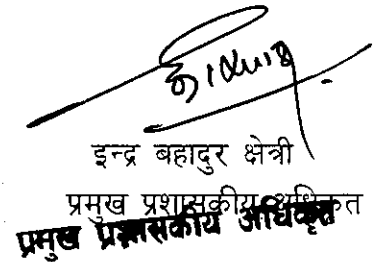 इन्द्र बहादुर क्षेत्री
प्रमुख प्रशासकीय अधिकृत
प्रमुख प्रशासकीय अधिकृत